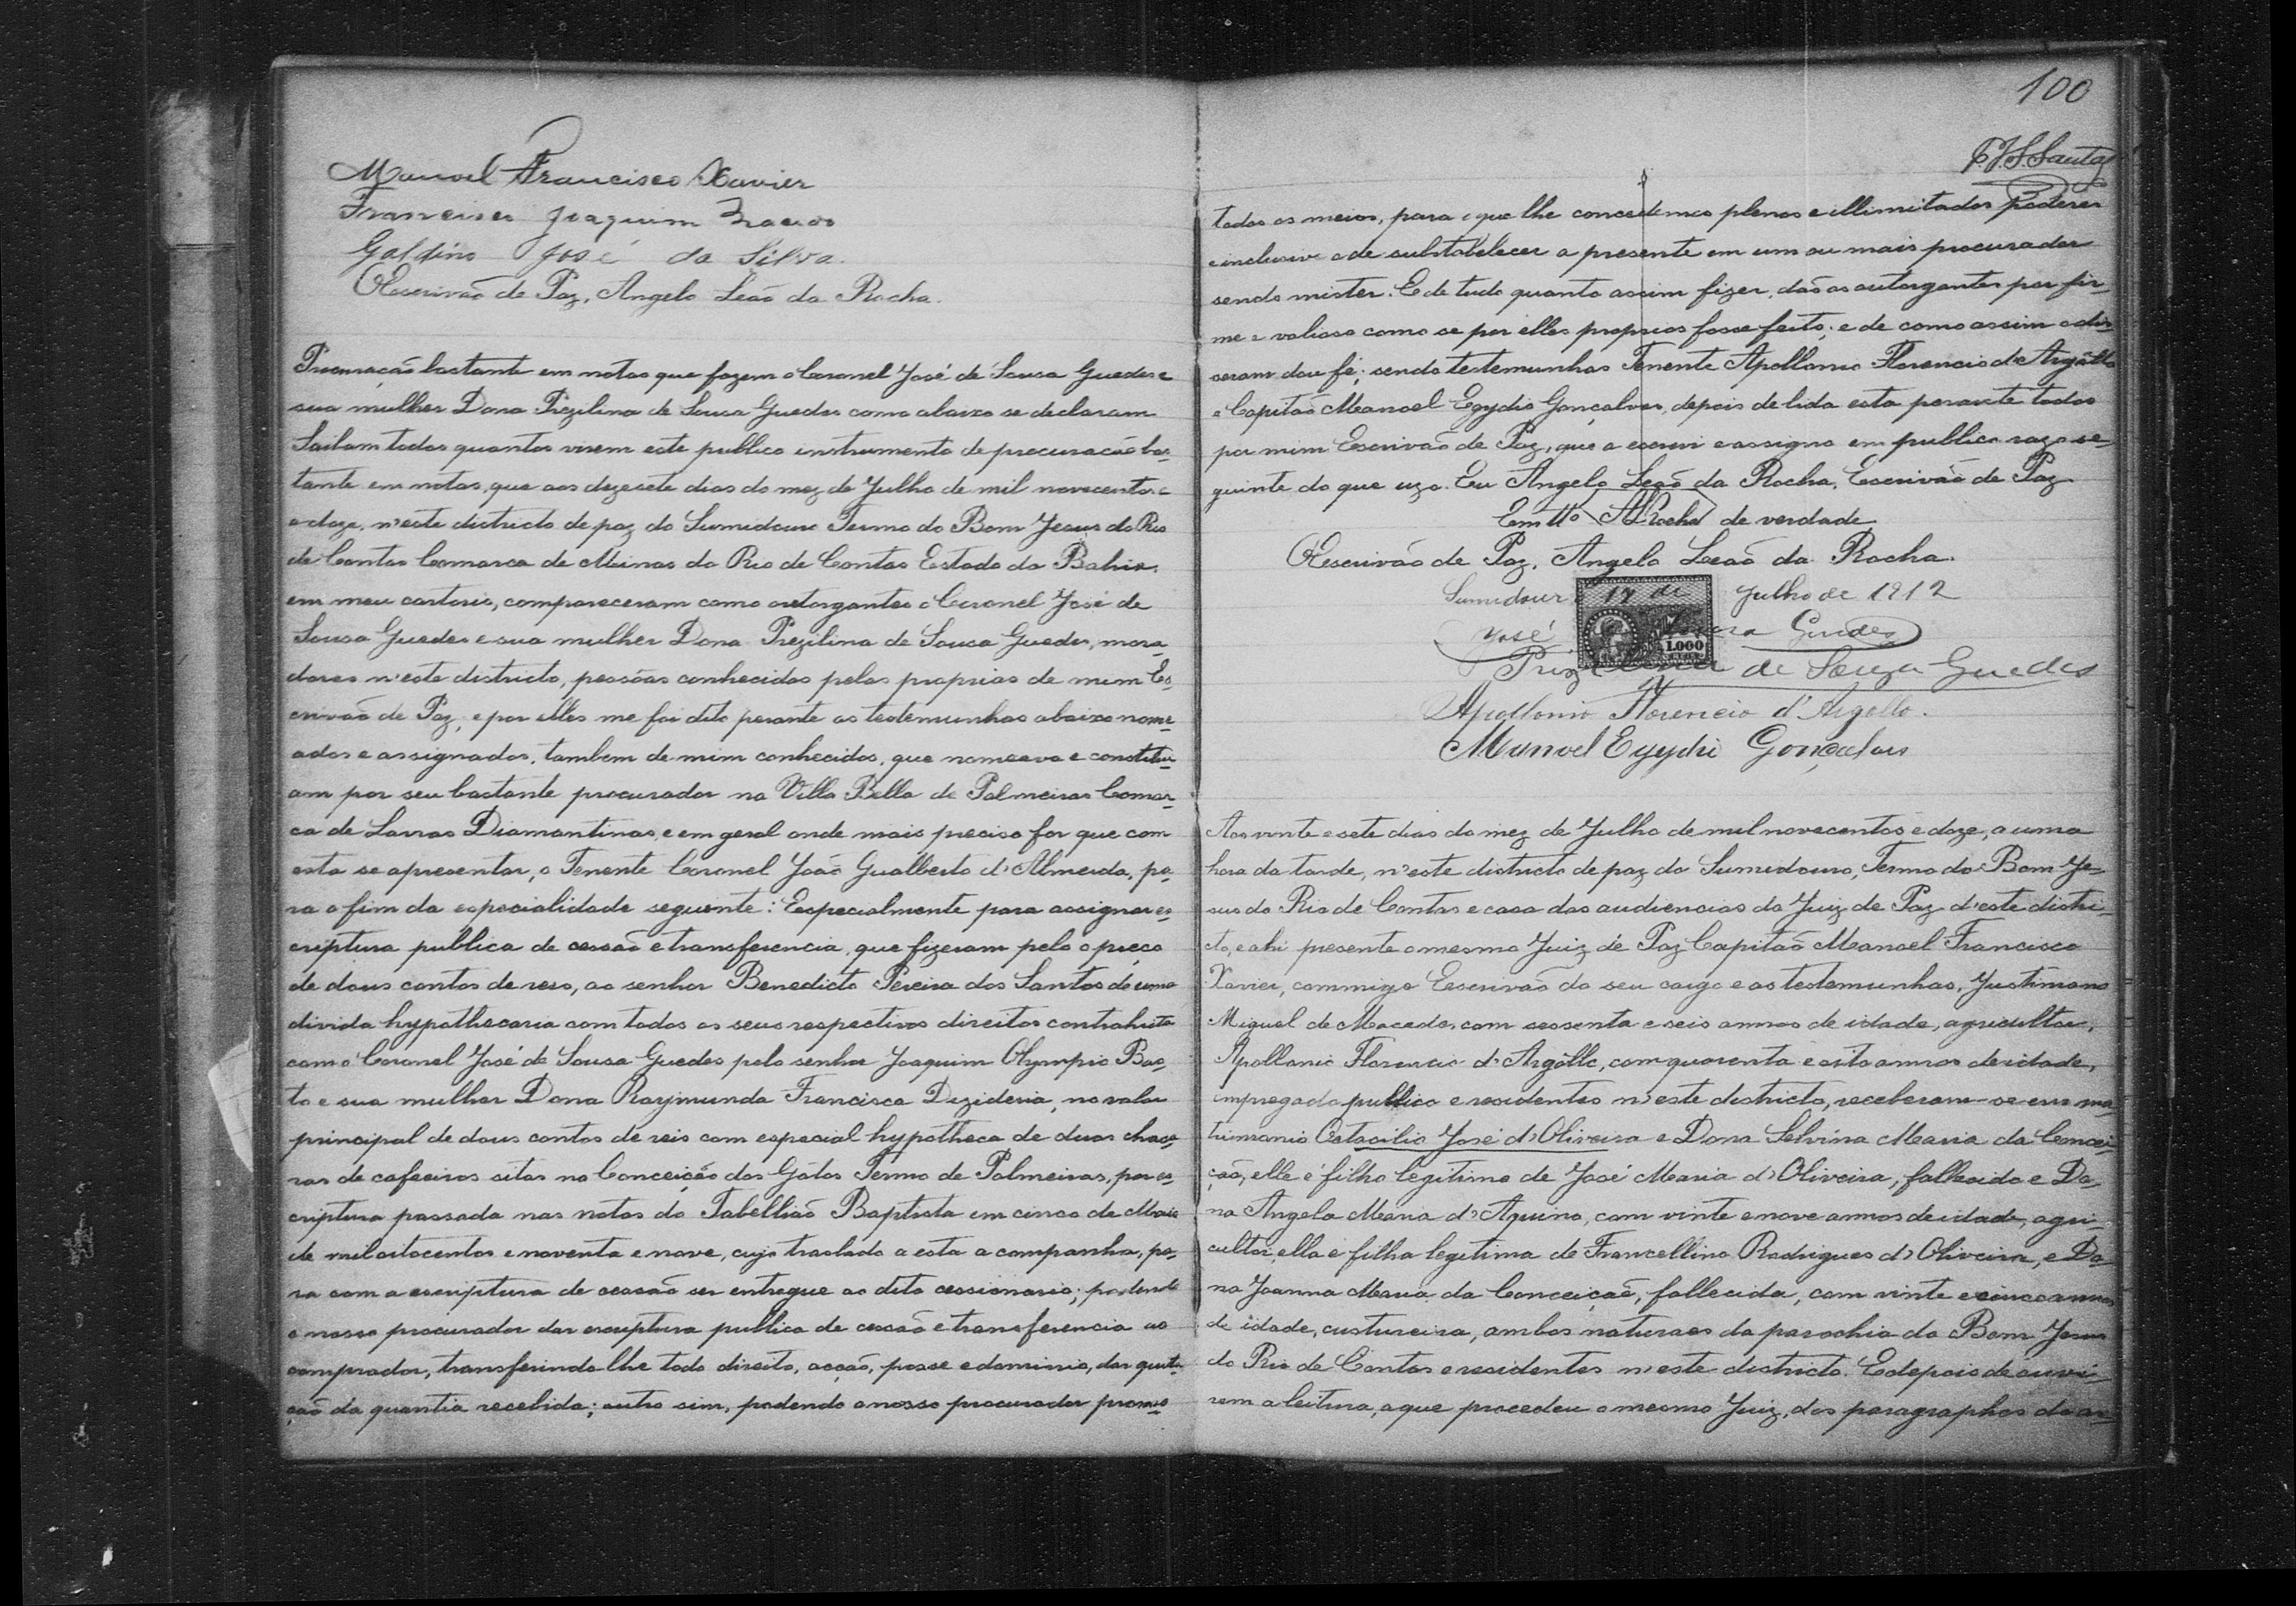 Manoel Francisco Xavier
Francisco Joaquim
Galdino José da Silva.
O Escrivão de Paz, Angelo Leão da Rocha.
Procuração bastante em notas que fazem o Coronel José de Sousa Guedes e
sua mulher Dona Prezilina de Sousa Guedes como abaixo se declaram
Saibam todos quantos virem este publico instrumento de procuracão bas-
tante em notas, que aos dezesete dias do mez de Julho de mil novecentos e
e doze, n'este districto de paz do Sumidouro Termo do Bom Jesus do Rio
de Contas Comarca de Minas do Rio de Contas Estado da Bahia.
em meu cartorio, compareceram como outorgantes o Coronel José de
Sousa Guedes e sua mulher Dona Prezilina de Sousa Guedes, mora-
dores n'este districto, pessôas conhecidas pelas proprias de mim Es-
crivão de Paz, e por elles me foi dito perante as testemunhas abaixo nome-
adas e assignadas, tambem de mim conhecidas, que nomeava e constitui-
am por seu bastante procurador na Villa Bella de Palmeiras Comar-
ca de Lavras Diamantinas, e em geral onde mais preciso for que com
esta se apresentar, o Tenente Coronel João Gualberto d'Almeida, pa-
ra o fim da especialidade seguinte: Especialmente para assignar es-
criptura publica de cessão e transferencia, que fizeram pelo o preço
de dous contos de reis, ao senhor Benedicto Pereira dos Santos de uma
divida hypothecaria com todos os seus respectivos direitos contrahida
com o Coronel José de Sousa Guedes pelo senhor Joaquim Olympio Bas-
to e sua mulher Dona Raymunda Francisca Dezideria, no valor
principal de dous contos de reis com especial hypotheca de duas chaca-
ras de cafeeiros sitas na Conceição dos Gatos Termo de Palmeiras, por es-
criptura passada nas notas do Tabellião Baptista em cinco de Maio
de mil oitocentos e noventa e nove, cujo traslado a esta acompanha, pa-
ra com a escriptura de cessão ser entregue ao dito cessionario; podendo
o nosso procurador dar escriptura publica de cessão e transferencia ao
comprador, transferindo lhe todo direito, acção, posse e dominio, dar quita-
ção da quantia recebida; outro sim, podendo o nosso procurador promo-
100
todos os meios, para o que lhe concedemos plenos e illimitados poderes
e inclusive o de substabelecer a presente em um ou mais procurador
sendo mister. E de tudo quanto assim fizer, dão os outorgantes por fir-
me e valioso como se por elles proprios fosse feito; e de como assim o dis-
seram dou fé; sendo testemunhas Tenente Apollonio Florencio d'Argôllo
e Capitão Manoel Egydio Gonçalves, depois de lida esta perante todos
por mim Escrivão de Paz, que a escrevi e assigno em publico razo se-
guinte do que uzo. Eu Angelo Leão da Rocha, Escrivão de Paz
Em tto ALRocha de verdade
O Escrivão de Paz, Angelo Leão da Rocha.
Sumidouro 17 de Julho de 1912
José de Sousa Guedes
1.000
de Souza Guedes
Apollonio Florencio d'Argollo.
Manoel Egydio Gonçalves
Aos vinte e sete dias do mez de Julho de mil novecentos e doze, a uma
hora da tarde, n'este districto de paz do Sumidouro, Termo do Bom Je-
sus do Rio de Contas e casa das audiencias do Juiz de Paz d'este distri-
cto, e ahi presente o mesmo Juiz de Paz Capitão Manoel Francisco
Xavier, commigo Escrivão do seu cargo e as testemunhas, Justiniano
Miguel de Macedo, com sessenta e seis annos de idade, agricultor,
Apollonio Florencio d'Argôllo, com quarenta e oito annos de idade,
empregado publico e residentes n'este districto, receberam-se em ma-
trimonio Octacilio José d'Oliveira e Dona Selvina Maria da Concei-
ção, elle é filho legitimo de José Maria d'Oliveira, fallecido e Do-
na Angela Maria d'Aquino, com vinte e nove annos de idade, agri-
cultor, ella e filha legitima de Francellino Rodrigues d'Oliveira, e Do-
na Joanna Maria da Conceição, fallecida, com vinte e cinco annos
de idade, custureira, ambos naturaes da parochia do Bom Jesus
do Rio de Contas e residentes n'este districto. E depois de ouvi-
rem a leitura, a que procedeu o mesmo Juiz, dos paragraphos do ar-